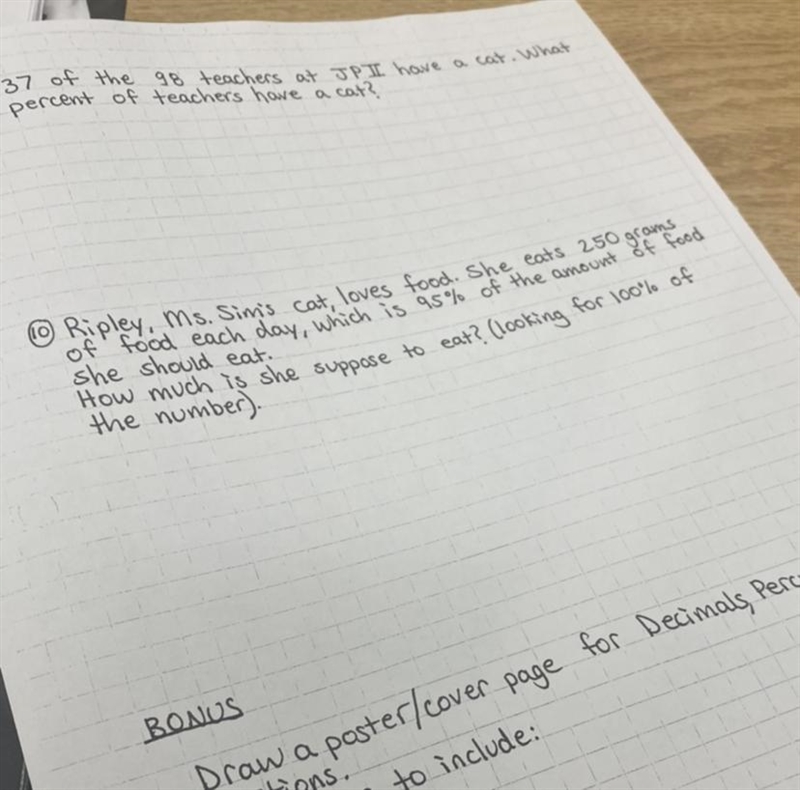 37 of the 98 teachers at JPII have a cat. What
percent of teachers have a cat?
10 Ripley, Ms. Sim's cat, loves food. She eats 250 grams
of food each day, which is 95% of the amount of food
she should eat.
How much is she suppose to eat? (looking for 100% of
the number).
BONUS
Draw a poster/cover page for Decimals, Perc
tions.
to include: